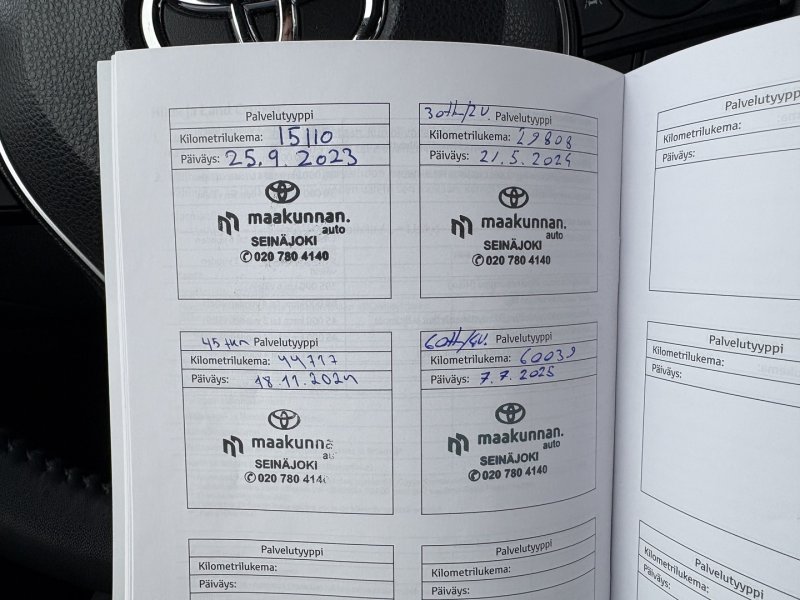 Palvelutyyppi
Kilometrilukema: 15110
Päiväys: 25.9.2023
maakunnan.
auto
SEINÄJOKI
✆020 780 4140
30th/2V. Palvelutyyppi
Kilometrilukema: 29808
Päiväys: 21.5.2024
maakunnan.
auto
SEINÄJOKI
✆020 780 4140
45 tkm Palvelutyyppi
Kilometrilukema: 44717
Päiväys: 18.11.2024
maakunna
au
SEINÄJOKI
✆020 780 414
60th/4V. Palvelutyyppi
Kilometrilukema: 60039
Päiväys: 7.7.2025
maakunnan.
auto
SEINÄJOKI
✆020 780 4140
Palvelutyyppi
Kilometrilukema:
Päiväys:
Palvelutyyppi
Kilometrilukema:
Päiväys:
Palvelutyyppi
Kilometrilukema:
Päiväys:
Palvelutyyppi
Kilometrilukema:
Päiväys:
Palvelutyyppi
Kilometrilukema:
Päiväys: